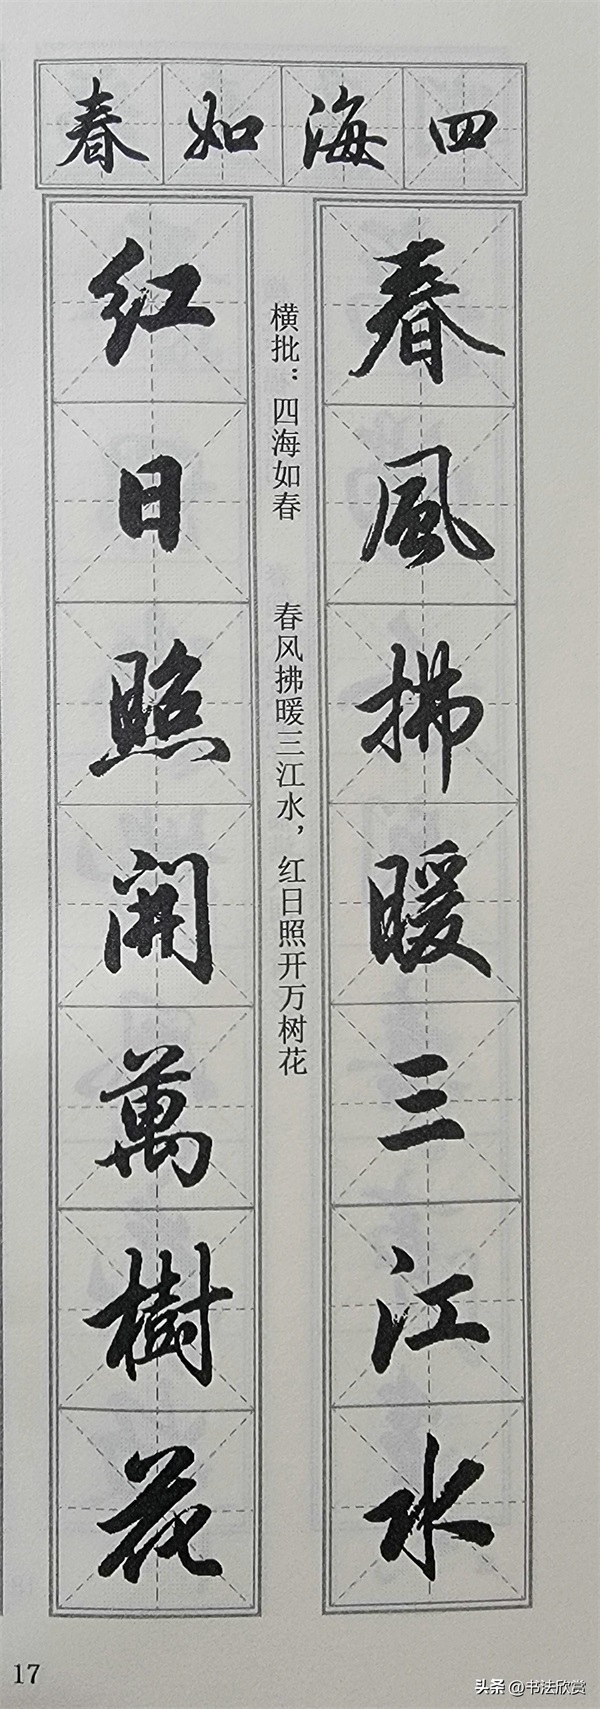 四海如春
春風拂暖三江水
横批：四海如春
春风拂暖三江水，红日照开万树花
红日照開萬樹花
17
头条 @书法欣赏